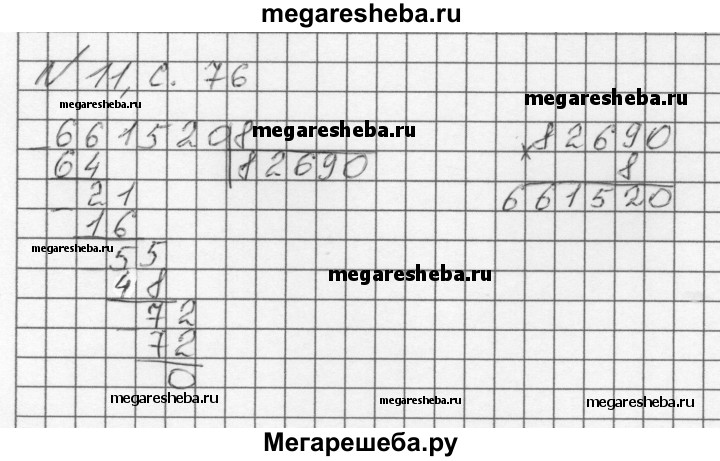 megaresheba.ru
N 11, с. 76
megaresheba.ru
megaresheba.ru
661520 8 megaresheba.ru
- 64 82690
21
- 16
megaresheba.ru
55
48
72
72
0
× 82690
8
661520
megaresheba.ru
megaresheba.ru
megaresheba.ru
megaresheba.ru
Мегарешеба.ру